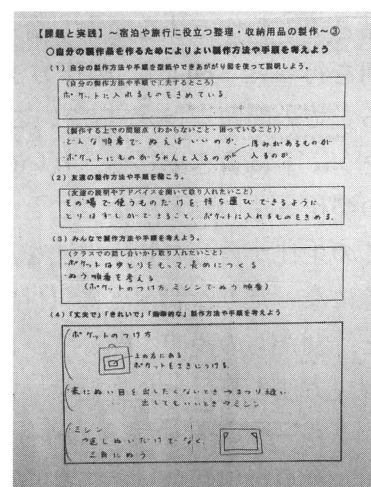 【課題と実践】～宿泊や旅行に役立つ整理・収納用品の製作～③
○自分の製作品を作るためによりよい製作方法や手順を考えよう
（1）自分の製作方法や手順を型紙やできあがり図を使って説明しよう。
（自分の製作方法や手順で工夫するところ）
ポケットに入れるものをきめている.
（製作する上での問題点（わからないこと・困っていること））
どんな順番で、ぬえばいいのか.
ポケットにものがちゃんと入るのか
厚みがあるものが
入るのか.
（2）友達の製作方法や手順を聞こう。
（友達の説明やアドバイスを聞いて取り入れたいこと）
その場で使うものだけを、持ち運びできるように
とりはずしができること. ポケットに入れるものをきめる.
（3）みんなで製作方法や手順を考えよう。
（クラスでの話し合いから取り入れたいこと）
・ポケットはゆとりをもって、長めにつくる
・ぬう順番を考える
（ポケットのつけ方、ミシンでぬう順番）
（4）「丈夫で」「きれいで」「効率的な」製作方法や手順を考えよう
ポケットのつけ方
上の方にある
ポケットをさきにつける.
表にぬい目を出したくないとき→まつり縫い
出してもいいとき→ミシン
ミシン
→返しぬいだけでなく、
三角にぬう